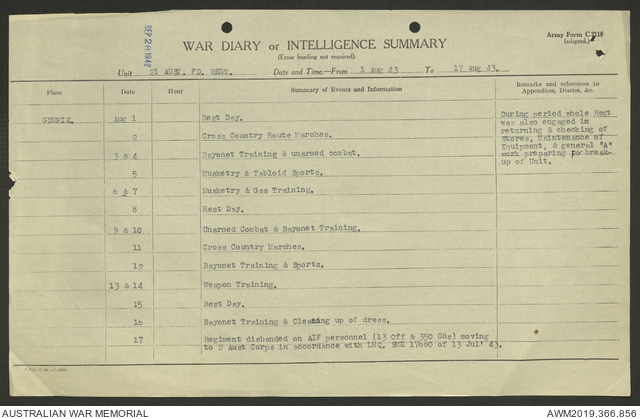 SEP 28 1942
Army Form C.2118
(adapted.)
WAR DIARY or INTELLIGENCE SUMMARY
(Erase heading not required).
Unit 21 AUST. FD. REGT. Date and Time—From 1 Aug 43 To 17 Aug 43.
Place Date Hour Summary of Events and Information Remarks and references to
Appendices, Diaries, &c.
GYMPIE. Aug 1 Rest Day. During period whole Regt
was also engaged in
2 Cross Country Route Marches. returning & checking of
Stores, Maintenance of
3 & 4 Bayonet Training & unarmed combat. Equipment, & general "A"
work preparing to break-
5 Musketry & Tabloid Sports. up of Unit.
6 & 7 Musketry & Gas Training.
8 Rest Day.
9 & 10 Unarmed Combat & Bayonet Training.
11 Cross Country Marches.
12 Bayonet Training & Sports.
13 & 14 Weapon Training.
15 Rest Day.
16 Bayonet Training & Cleaning up of dress.
17 Regiment disbanded on AIF personnel (13 Off & 350 ORs) moving
to 2 Aust Corps in accordance with LHQ. SME 17680 of 13 Jul' 43.
AUSTRALIAN WAR MEMORIAL AWM2019.366.856